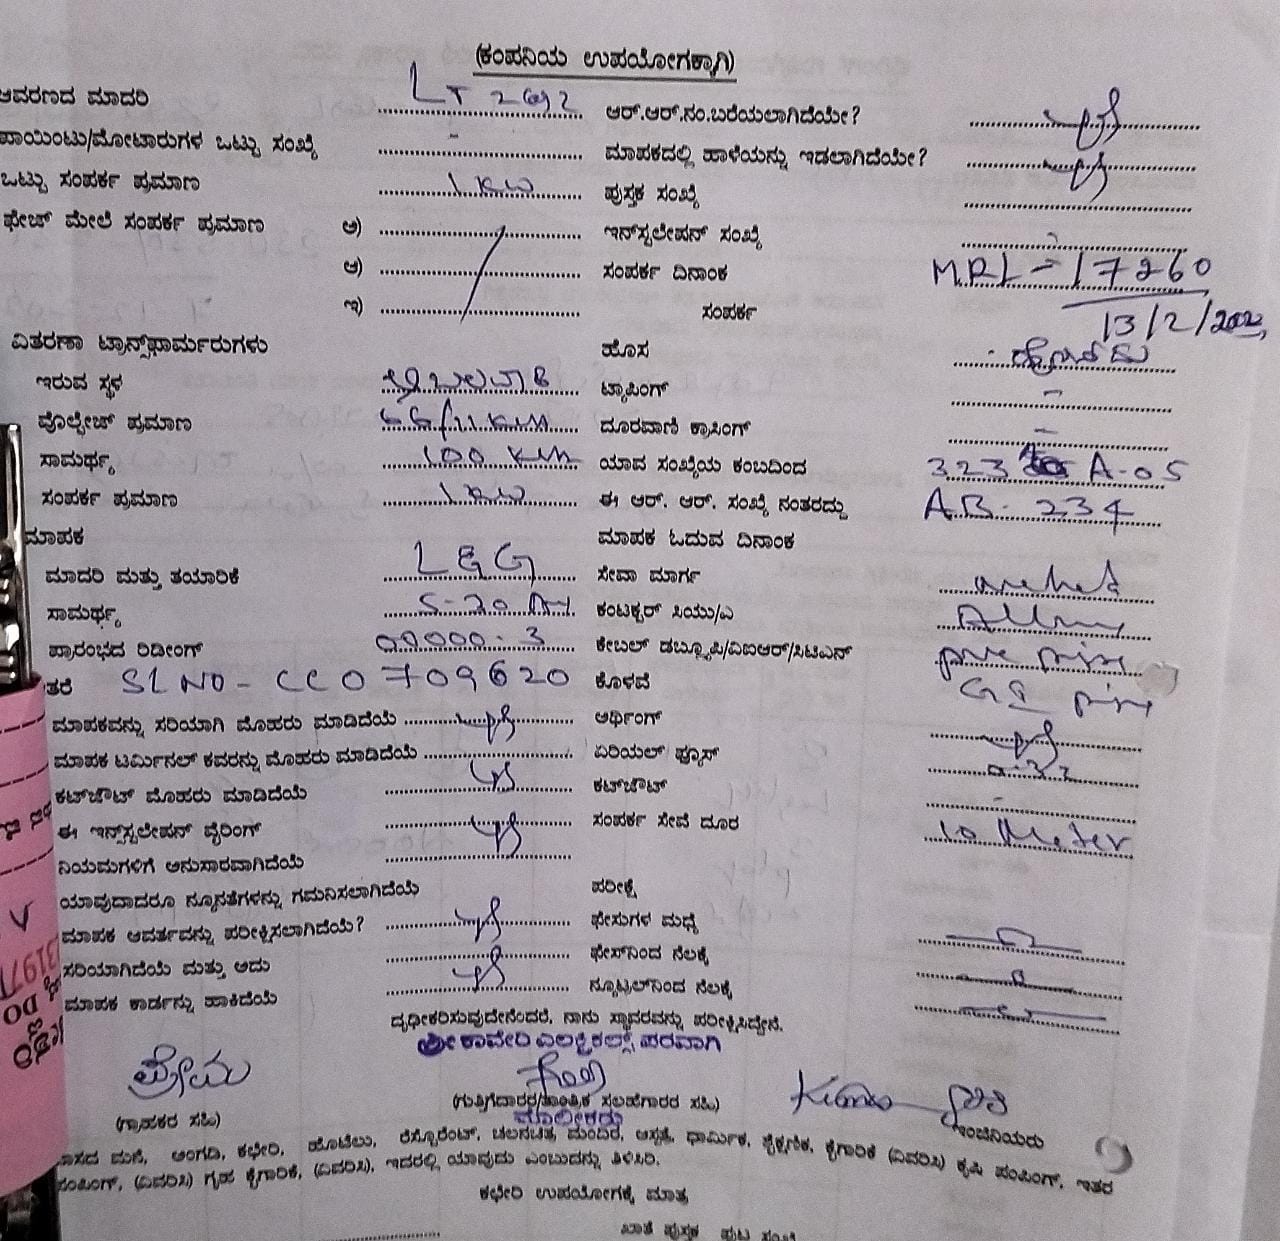 (ಕಂಪನಿಯ ಉಪಯೋಗಕ್ಕಾಗಿ)
ಆವರಣದ ಮಾದರಿ LT 2 ಆರ್.ಆರ್.ನಂ.ಬರೆಯಲಾಗಿದೆಯೇ?
ಪಾಯಿಂಟು/ಮೋಟಾರುಗಳ ಒಟ್ಟು ಸಂಖ್ಯೆ - ಮಾಪಕದಲ್ಲಿ ಹಾಳೆಯನ್ನು ಇಡಲಾಗಿದೆಯೇ?
ಒಟ್ಟು ಸಂಪರ್ಕ ಪ್ರಮಾಣ 1 KW ಪುಸ್ತಕ ಸಂಖ್ಯೆ
ಫೇಜ್ ಮೇಲೆ ಸಂಪರ್ಕ ಪ್ರಮಾಣ ಅ) ಇನ್‌ಸ್ಟಲೇಷನ್ ಸಂಖ್ಯೆ -
ಆ) ಸಂಪರ್ಕ ದಿನಾಂಕ MRL - 17260
ಇ) ಸಂಪರ್ಕ 13/2/
ವಿತರಣಾ ಟ್ರಾನ್ಸ್‌ಫಾರ್ಮರುಗಳು ಹೊಸ
ಇರುವ ಸ್ಥಳ ಟ್ಯಾಪಿಂಗ್ -
ವೊಲ್ಟೇಜ್ ಪ್ರಮಾಣ ದೂರವಾಣಿ ಕ್ರಾಸಿಂಗ್ -
ಸಾಮರ್ಥ್ಯ 100 ಯಾವ ಸಂಖ್ಯೆಯ ಕಂಬದಿಂದ 323 A-05
ಸಂಪರ್ಕ ಪ್ರಮಾಣ 1 KW ಈ ಆರ್. ಆರ್. ಸಂಖ್ಯೆ ನಂತರದ್ದು AB- 234
ಮಾಪಕ ಮಾಪಕ ಓದುವ ದಿನಾಂಕ
ಮಾದರಿ ಮತ್ತು ತಯಾರಿಕೆ L&G ಸೇವಾ ಮಾರ್ಗ
ಸಾಮರ್ಥ್ಯ 5-20 ಕಂಟಕ್ಟರ್ ಸಿಯು/ಎ
ಪ್ರಾರಂಭದ ರಿಡೀಂಗ್ 00000-3 ಕೇಬಲ್ ಡಬ್ಲ್ಯೂಪಿ/ವಿಐಆರ್/ಸಿಟಿಎಸ್
ತರೆ SL NO - CC0709620 ಕೊಳವೆ GI
ಮಾಪಕವನ್ನು ಸರಿಯಾಗಿ ಮೊಹರು ಮಾಡಿದೆಯೆ ಆರ್ಥಿಂಗ್
ಮಾಪಕ ಟರ್ಮಿನಲ್ ಕವರನ್ನು ಮೊಹರು ಮಾಡಿದೆಯೆ ಏರಿಯಲ್ ಫ್ಯೂಸ್
ಕಟ್‌ಔಟ್ ಮೊಹರು ಮಾಡಿದೆಯೆ ಕಟ್‌ಔಟ್ -
ಈ ಇನ್ಸ್‌ಸ್ಟಲೇಷನ್ ವೈರಿಂಗ್ ಸಂಪರ್ಕ ಸೇವೆ ದೂರ 10 Meter
ನಿಯಮಗಳಿಗೆ ಅನುಸಾರವಾಗಿದೆಯೆ
ಯಾವುದಾದರೂ ನ್ಯೂನತೆಗಳನ್ನು ಗಮನಿಸಲಾಗಿದೆಯೆ ಪರೀಕ್ಷೆ
ಮಾಪಕ ಆವರ್ತವನ್ನು ಪರೀಕ್ಷಿಸಲಾಗಿದೆಯೆ? ಫೇಸುಗಳ ಮಧ್ಯೆ
ಸರಿಯಾಗಿದೆಯೆ ಮತ್ತು ಅದು ಫೇಸ್‌ನಿಂದ ನೆಲಕ್ಕೆ
ಮಾಪಕ ಕಾರ್ಡನ್ನು ಹಾಕಿದೆಯೆ ನ್ಯೂಟ್ರಲ್‌ನಿಂದ ನೆಲಕ್ಕೆ
ದೃಢೀಕರಿಸುವುದೇನೆಂದರೆ, ನಾನು ಸ್ಥಾವರವನ್ನು ಪರೀಕ್ಷಿಸಿದ್ದೇನೆ.
ಶ್ರೀ ಕಾವೇರಿ ಎಲಕ್ಟ್ರಿಕಲ್ಸ್ ಪರವಾಗಿ
ಪ್ರೇಮ
(ಗ್ರಾಹಕರ ಸಹಿ) (ಗುತ್ತಿಗೆದಾರರ/ತಾಂತ್ರಿಕ ಸಲಹೆಗಾರರ ಸಹಿ) ಇಂಜಿನಿಯರು
ಮಾಲೀಕರು
ವಾಸದ ಮನೆ, ಅಂಗಡಿ, ಕಛೇರಿ, ಹೊಟೆಲು, ರೆಸ್ಟೊರೆಂಟ್, ಚಲನಚಿತ್ರ ಮಂದಿರ, ಆಸ್ಪತ್ರೆ, ಧಾರ್ಮಿಕ, ಶೈಕ್ಷಣಿಕ, ಕೈಗಾರಿಕೆ (ವಿವರಿಸಿ) ಕೃಷಿ ಪಂಪಿಂಗ್, ಇತರ
ಪಂಪಿಂಗ್, (ವಿವರಿಸಿ) ಗೃಹ ಕೈಗಾರಿಕೆ, (ವಿವರಿಸಿ), ಇದರಲ್ಲಿ ಯಾವುದು ಎಂಬುದನ್ನು ತಿಳಿಸಿರಿ.
ಕಛೇರಿ ಉಪಯೋಗಕ್ಕೆ ಮಾತ್ರ
ಖಾತೆ ಪುಸ್ತಕ ಪುಟ ಸಂಖ್ಯೆ